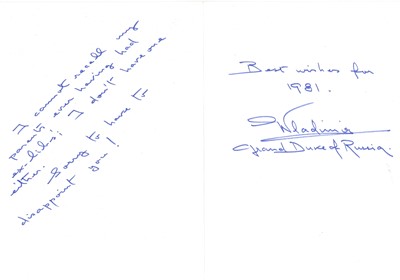 I cannot recall my
parents ever having had
ex-libris! I don't have one
either. Sorry to have to
disappoint you!
Best wishes for
1981.
Vladimir
Grand Duke of Russia.